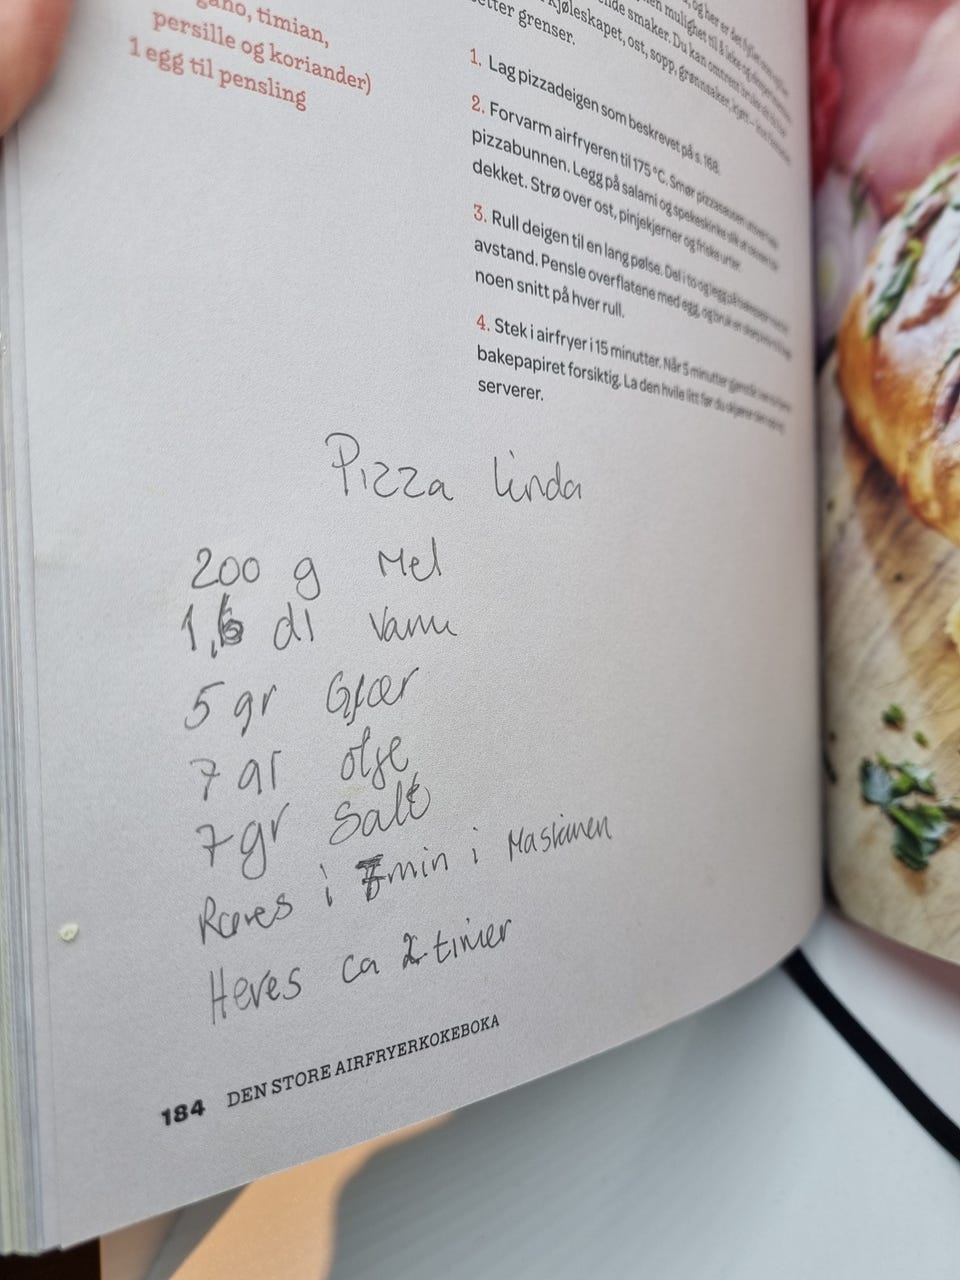 gano, timian,
persille og koriander)
1 egg til pensling
og her er det
mulighet til å leke
nde smaker. Du kan omtrent bruke alt du har
kjøleskapet, ost, sopp, grønnsaker, kjøtt
setter grenser.
1. Lag pizzadeigen som beskrevet på s. 168.
2. Forvarm airfryeren til 175 °C. Smør pizzasausen utover hele
pizzabunnen. Legg på salami og spekeskinke slik at bunnen blir
dekket. Strø over ost, pinjekjerner og friske urter.
3. Rull deigen til en lang pølse. Del i to og legg på bakepapir med litt
avstand. Pensle overflatene med egg, og bruk en skarp kniv til å lage
noen snitt på hver rull.
4. Stek i airfryer i 15 minutter. Når 5 minutter gjenstår
bakepapiret forsiktig. La den hvile litt før du skjærer den opp og
serverer.
Pizza Linda
200 g Mel
1,6 dl Vann
5 gr Gjær
7 gr olje
7gr Salt
Røres i 7min i Maskinen
Heves ca 2 timer
184 DEN STORE AIRFRYERKOKEBOKA